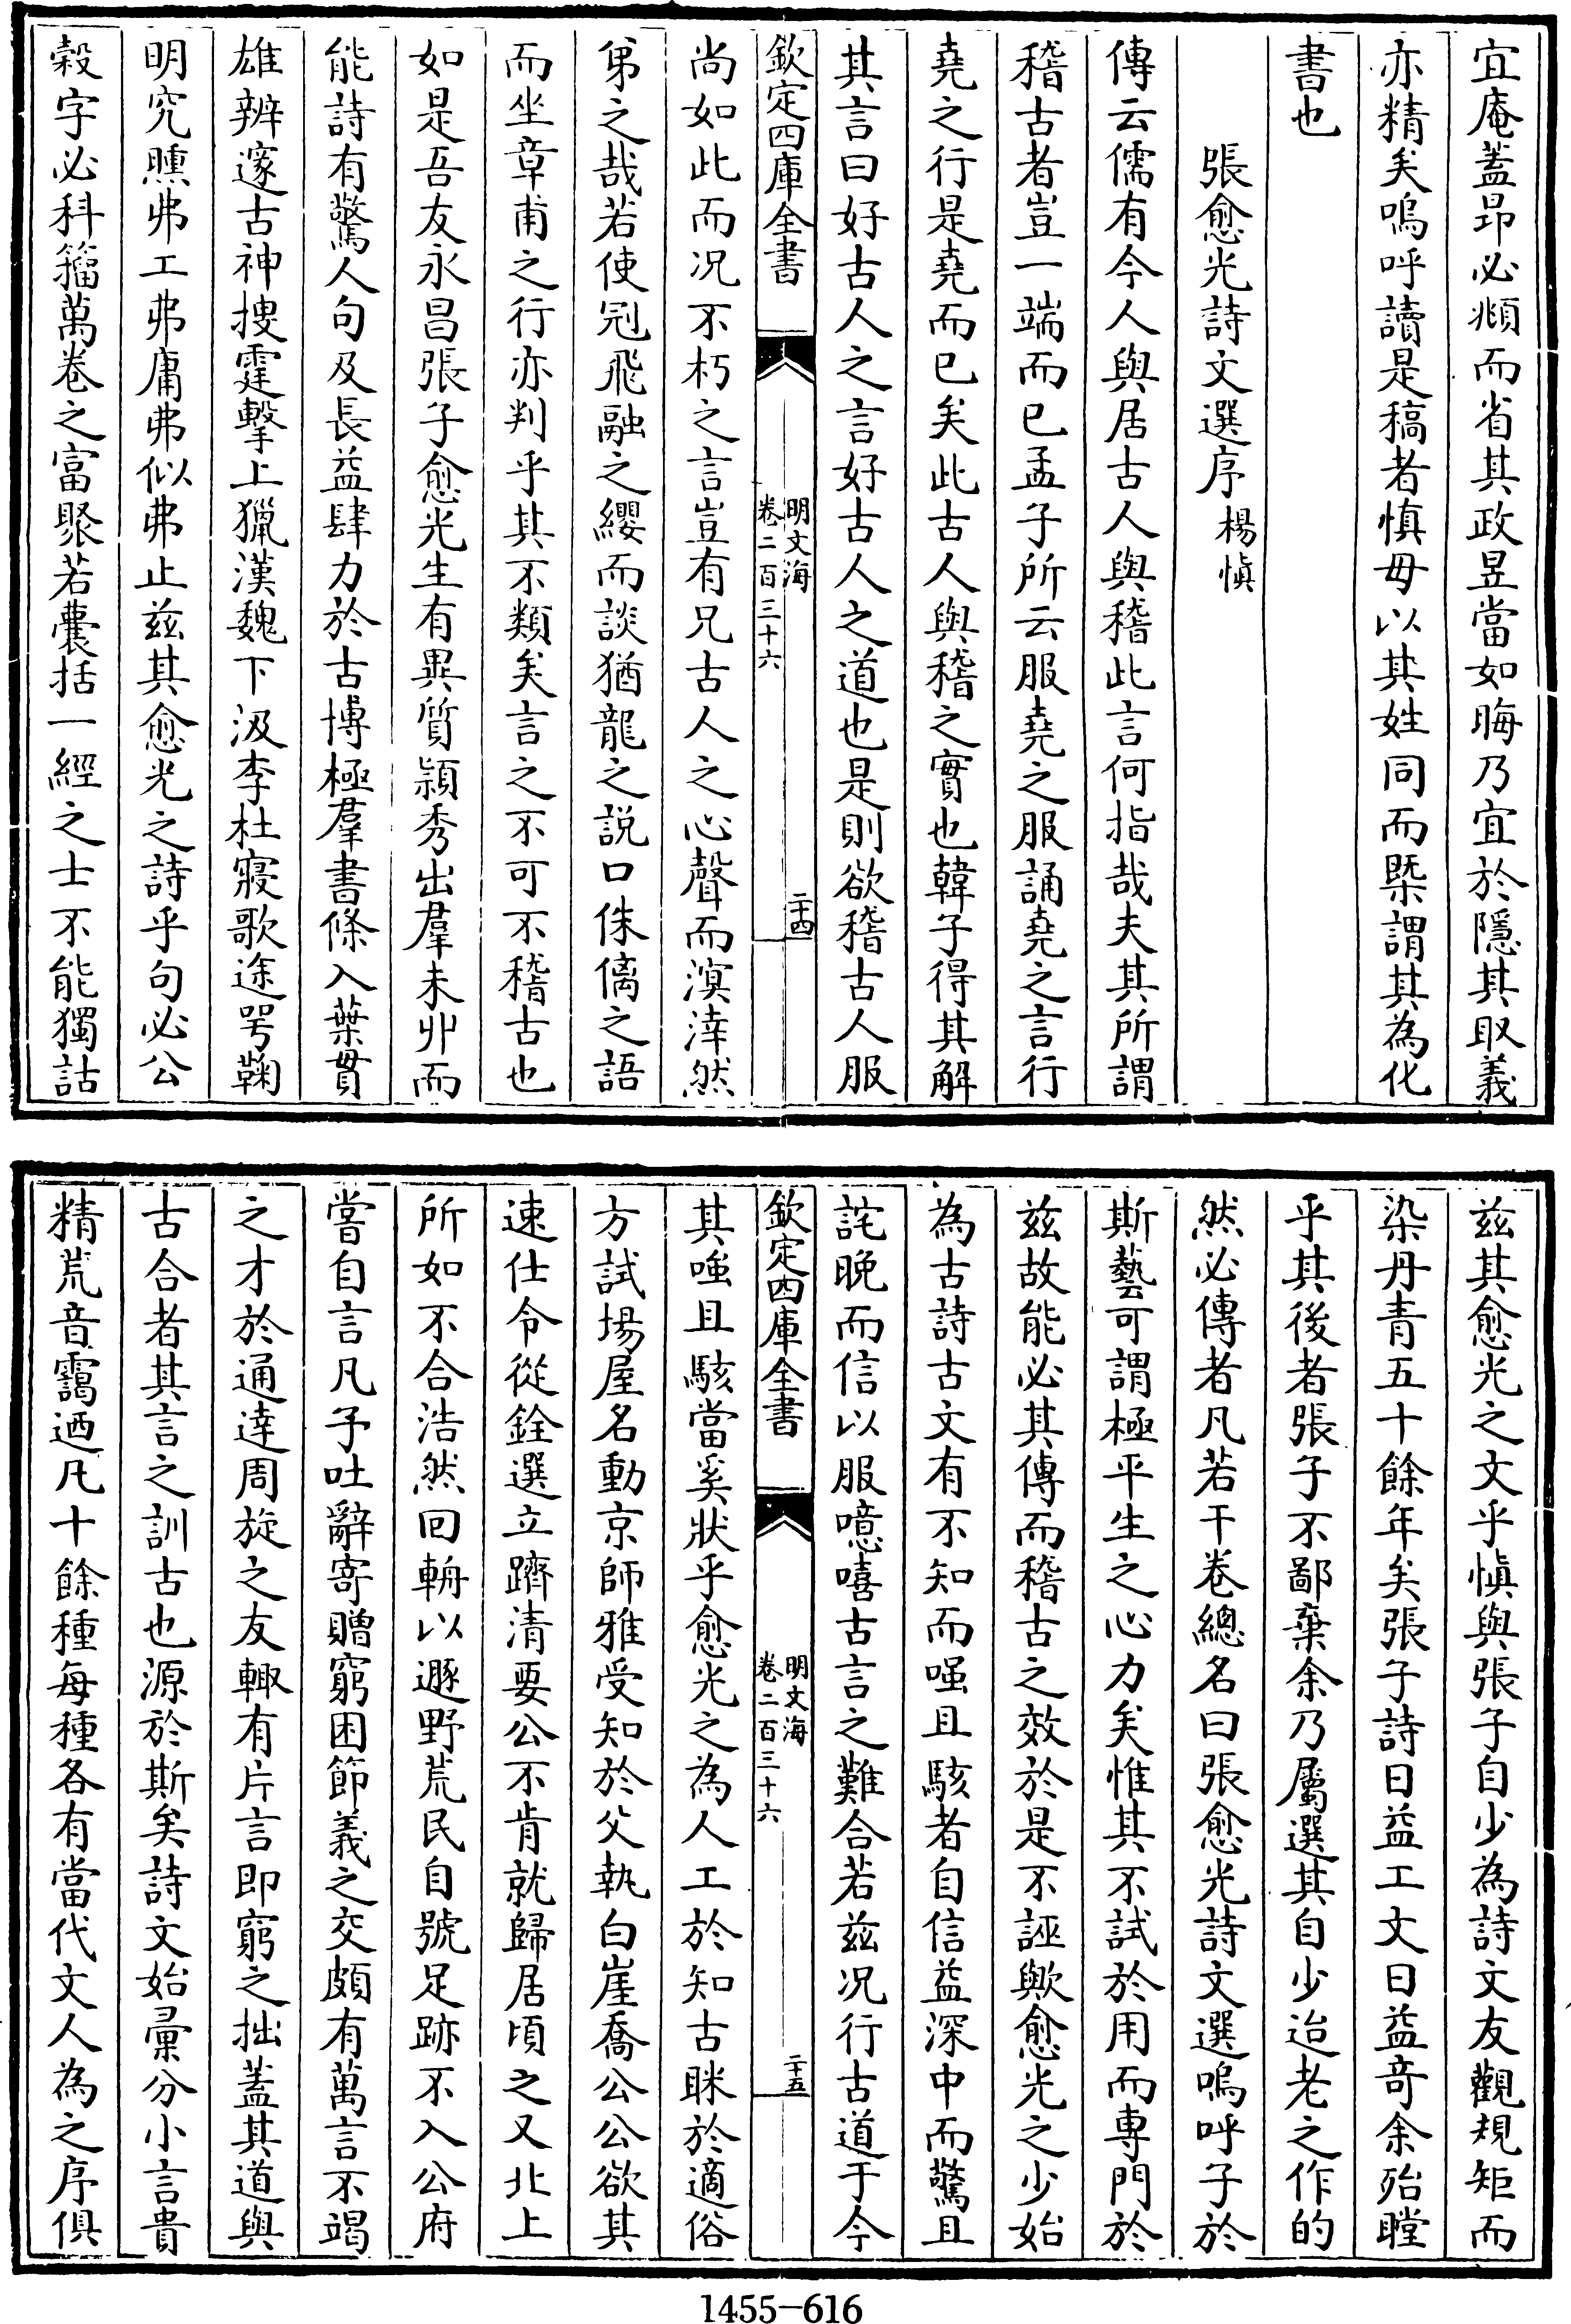 宜庵蓋昂必頫而省其政昱當如晦乃宜於隱其取義
亦精矣嗚呼讀是稿者慎毋以其姓同而槩謂其為化
書也
張愈光詩文選序 楊慎
傳云儒有今人與居古人與稽此言何指哉夫其所謂
稽古者豈一端而已孟子所云服堯之服誦堯之言行
堯之行是堯而已矣此古人與稽之實也韓子得其解
其言曰好古人之言好古人之道也是則欲稽古人服
欽定四庫全書 明文海 卷二百三十六 二十四
尚如此而况不朽之言豈有兄古人之心聲而溟涬然
弟之哉若使冠飛融之纓而談猶龍之説口侏㒧之語
而坐章甫之行亦判乎其不類矣言之不可不稽古也
如是吾友永昌張子愈光生有異質頴秀出羣未丱而
能詩有驚人句及長益肆力於古博極羣書條入葉貫
雄辨邃古神搜霆擊上獵漢魏下汲李杜寢歌途咢鞠
明究曛弗工弗庸弗似弗止兹其愈光之詩乎句必公
穀字必科籀萬卷之富聚若囊括一經之士不能獨詁
兹其愈光之文乎慎與張子自少為詩文友觀規矩而
染丹青五十餘年矣張子詩日益工文日益奇余殆瞠
乎其後者張子不鄙棄余乃屬選其自少迨老之作的
然必傳者凡若干卷總名曰張愈光詩文選嗚呼子於
斯藝可謂極平生之心力矣惟其不試於用而專門於
兹故能必其傳而稽古之效於是不誣歟愈光之少始
為古詩古文有不知而嗤且駭者自信益深中而驚且
詫晚而信以服噫嘻古言之難合若兹况行古道于今
欽定四庫全書 明文海 卷二百三十六 二十五
其嗤且駭當奚狀乎愈光之為人工於知古眯於適俗
方試場屋名動京師雅受知於父執白崖喬公公欲其
速仕令從銓選立躋清要公不肯就歸居頃之又北上
所如不合浩然回輈以遯野荒民自號足跡不入公府
嘗自言凡予吐辭寄贈窮困節義之交頗有萬言不竭
之才於通達周旋之友輙有片言即窮之拙蓋其道與
古合者其言之訓古也源於斯矣詩文始彚分小言貴
精荒音靄迺凡十餘種每種各有當代文人為之序俱
1455-616